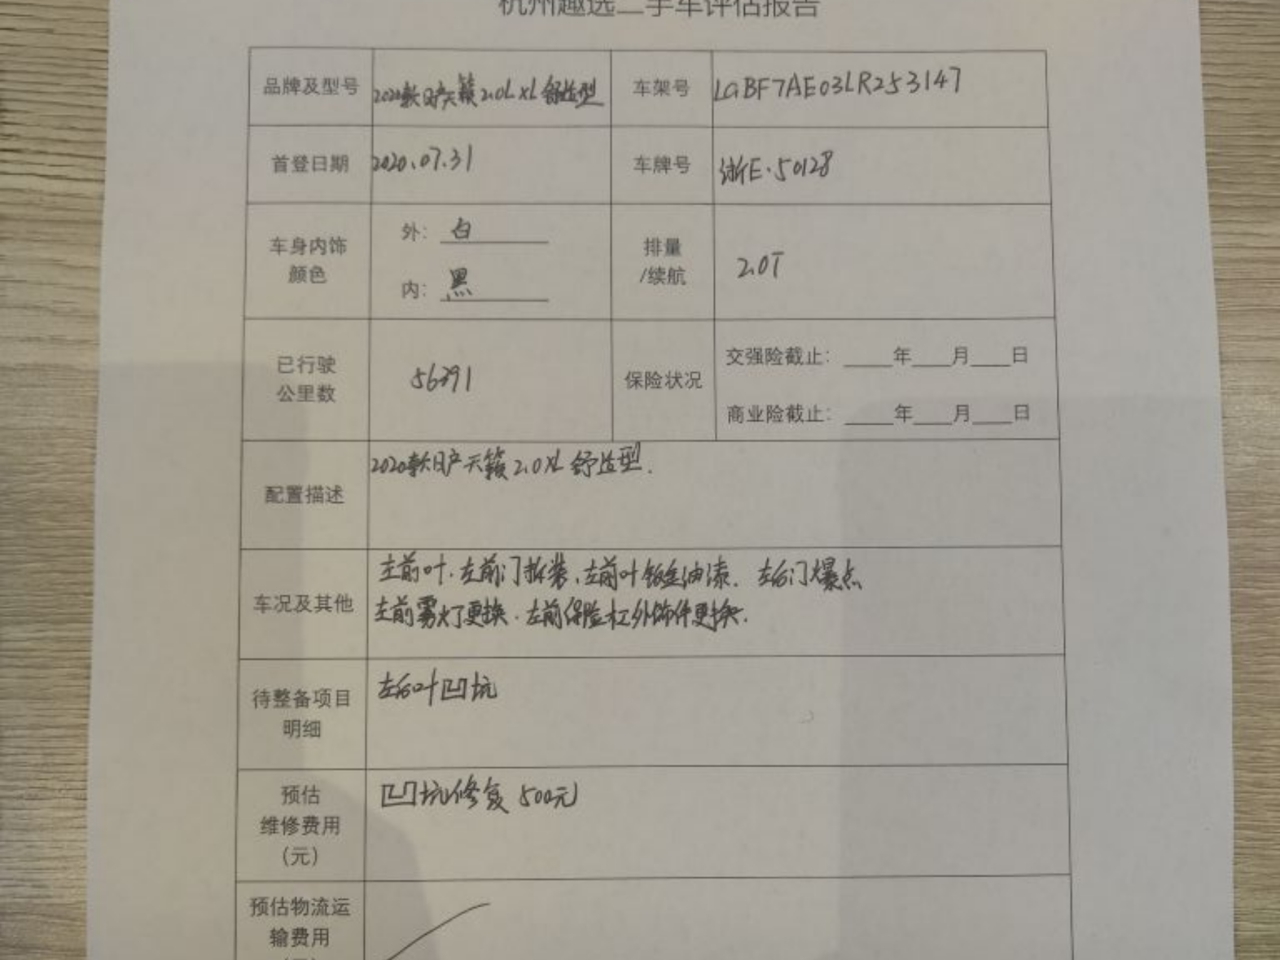 杭州趣选二手车评估报告
品牌及型号 2020款日产天籁2.0L XL 舒适型 车架号 LGBF7AE03LR253147
首登日期 2020.07.31 车牌号 浙E·50128
车身内饰
颜色
外: 白
内: 黑
排量
/续航
2.0T
已行驶
公里数
56791
保险状况
交强险截止: ____年____月____日
商业险截止: ____年____月____日
配置描述
2020款日产天籁2.0XL 舒适型.
车况及其他
左前叶.左前门拆装、左前叶钣金油漆. 左后门爆点
左前雾灯更换.左前保险杠外饰件更换.
待整备项目
明细
左后叶凹坑
预估
维修费用
(元)
凹坑修复 500元
预估物流运
输费用